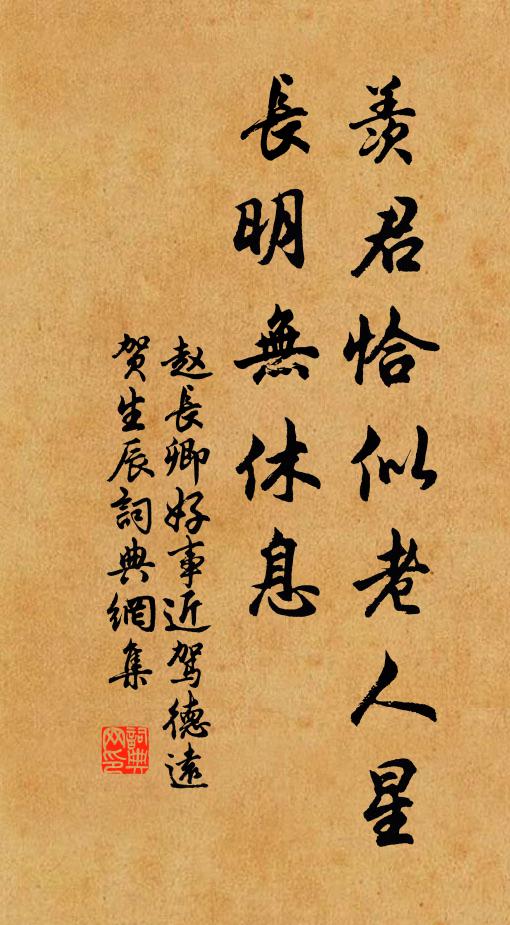 羨君恰似老人星
長明無休息
赵長卿好事近駕德遠
贺生辰詞典網集
詞典网印